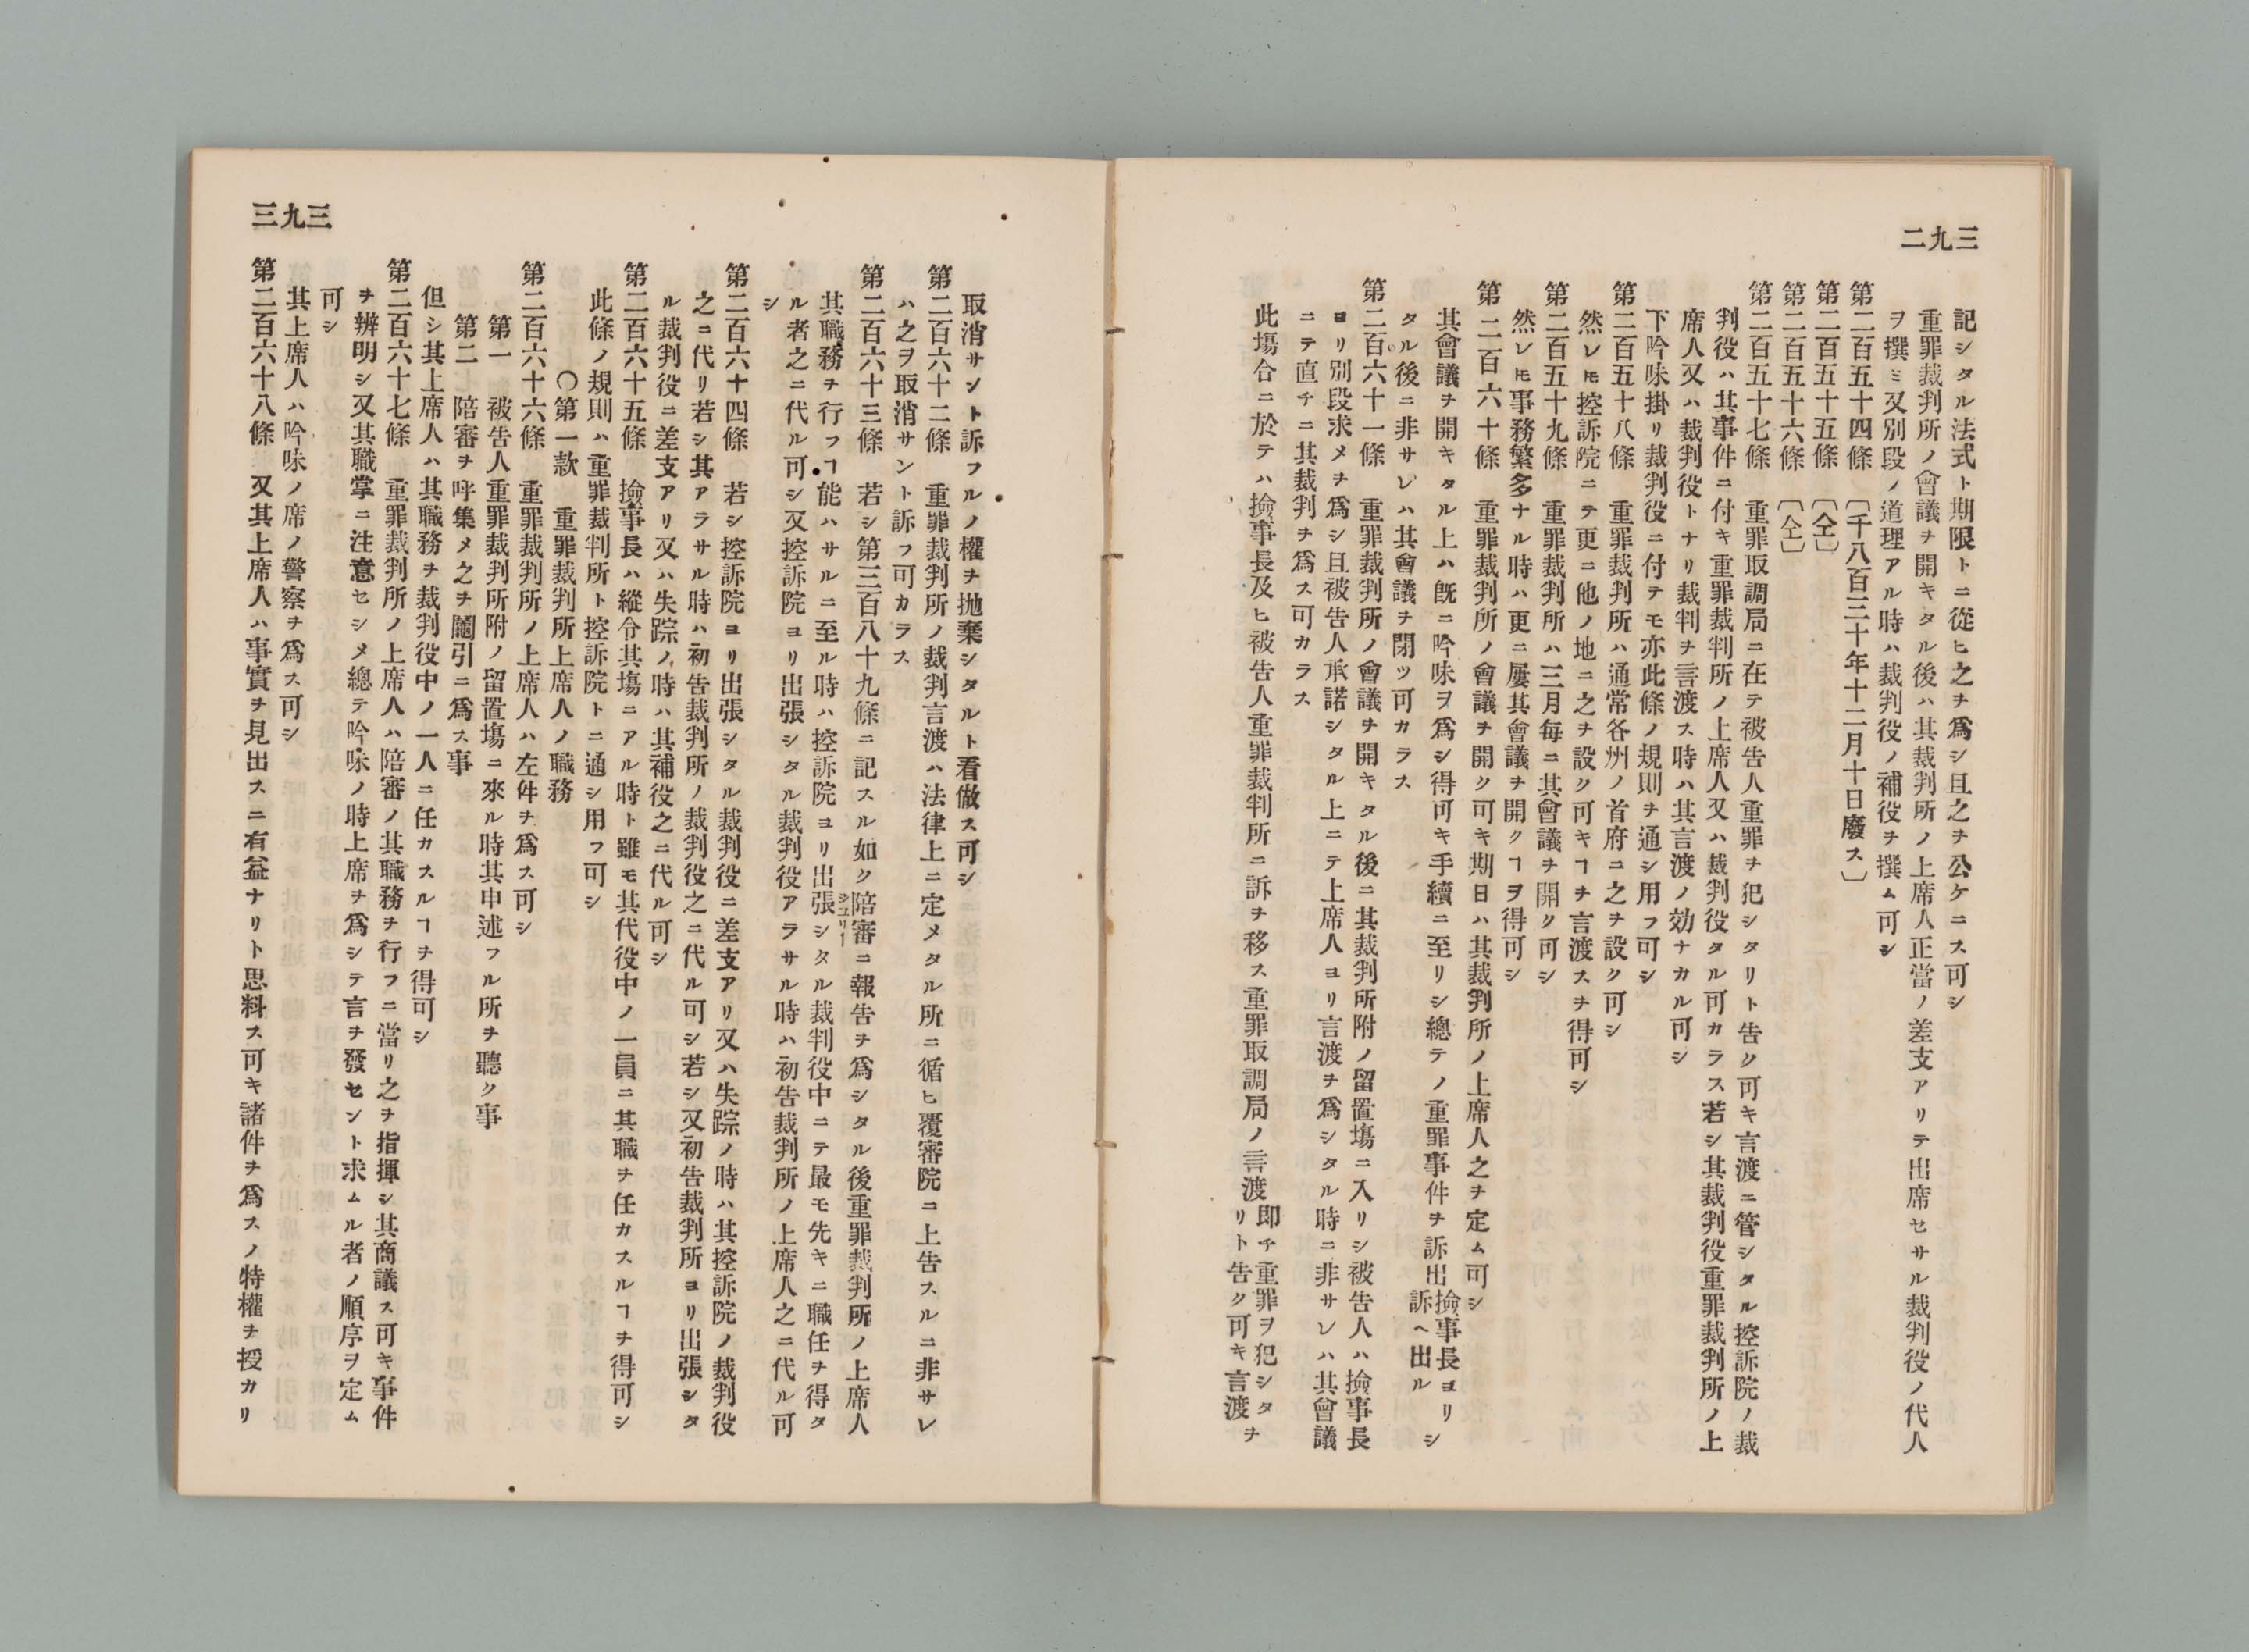 三九二
記シタル法式ト期限トニ從ヒ之ヲ爲シ且之ヲ公ケニス可シ
重罪裁判所ノ會議ヲ開キタル後ハ其裁判所ノ上席人正當ノ差支アリテ出席セサル裁判役ノ代人
ヲ撰ミ又別段ノ道理アル時ハ裁判役ノ補役ヲ撰ム可シ
第二百五十四條 〔千八百三十年十二月十日廢ス〕
第二百五十五條 〔仝〕
第二百五十六條 〔仝〕
第二百五十七條 重罪取調局ニ在テ被告人重罪ヲ犯シタリト告ク可キ言渡ニ管シタル控訴院ノ裁
判役ハ其事件ニ付キ重罪裁判所ノ上席人又ハ裁判役タル可カラス若シ其裁判役重罪裁判所ノ上
席人又ハ裁判役トナリ裁判ヲ言渡ス時ハ其言渡ノ効ナカル可シ
下吟味掛リ裁判役ニ付テモ亦此條ノ規則ヲ通シ用フ可シ
第二百五十八條 重罪裁判所ハ通常各州ノ首府ニ之ヲ設ク可シ
然レ𪜈控訴院ニテ更ニ他ノ地ニ之ヲ設ク可キヿヲ言渡スヲ得可シ
第二百五十九條 重罪裁判所ハ三月毎ニ其會議ヲ開ク可シ
然レ𪜈事務繁多ナル時ハ更ニ屢其會議ヲ開クヿヲ得可シ
第二百六十條 重罪裁判所ノ會議ヲ開ク可キ期日ハ其裁判所ノ上席人之ヲ定ム可シ
其會議ヲ開キタル上ハ既ニ吟味ヲ爲シ得可キ手續ニ至リシ總テノ重罪事件ヲ訴出撿事長ヨリ訴ヘ出ルシ
タル後ニ非サレハ其會議ヲ閉ツ可カラス
第二百六十一條 重罪裁判所ノ會議ヲ開キタル後ニ其裁判所附ノ留置場ニ入リシ被告人ハ撿事長
ヨリ別段求メヲ爲シ且被告人承諾シタル上ニテ上席人ヨリ言渡ヲ爲シタル時ニ非サレハ其會議
ニテ直チニ其裁判ヲ爲ス可カラス
此塲合ニ於テハ撿事長及ヒ被告人重罪裁判所ニ訴ヲ移ス重罪取調局ノ言渡即チ重罪ヲ犯シタリト告ク可キ言渡ヲ
三九三
取消サント訴フルノ權ヲ抛棄シタルト看做ス可シ
第二百六十二條 重罪裁判所ノ裁判言渡ハ法律上ニ定メタル所ニ循ヒ覆審院ニ上告スルニ非サレ
ハ之ヲ取消サント訴フ可カラス
第二百六十三條 若シ第三百八十九條ニ記スル如ク陪審ニ報告ヲ爲シタル後重罪裁判所ノ上席人
ジユリー
其職務ヲ行フヿ能ハサルニ至ル時ハ控訴院ヨリ出張シタル裁判役中ニテ最モ先キニ職任ヲ得タ
ル者之ニ代ル可シ又控訴院ヨリ出張シタル裁判役アラサル時ハ初告裁判所ノ上席人之ニ代ル可
シ
第二百六十四條 若シ控訴院ヨリ出張シタル裁判役ニ差支アリ又ハ失踪ノ時ハ其控訴院ノ裁判役
之ニ代リ若シ其アラサル時ハ初告裁判所ノ裁判役之ニ代ル可シ若シ又初告裁判所ヨリ出張シタ
ル裁判役ニ差支アリ又ハ失踪ノ時ハ其補役之ニ代ル可シ
第二百六十五條 撿事長ハ縱令其塲ニアル時ト雖モ其代役中ノ一員ニ其職ヲ任カスルヿヲ得可シ
此條ノ規則ハ重罪裁判所ト控訴院トニ通シ用フ可シ
〇第一款 重罪裁判所上席人ノ職務
第二百六十六條 重罪裁判所ノ上席人ハ左件ヲ爲ス可シ
第一 被告人重罪裁判所附ノ留置塲ニ來ル時其申述フル所ヲ聽ク事
第二 陪審ヲ呼集メ之ヲ鬮引ニ爲ス事
但シ其上席人ハ其職務ヲ裁判役中ノ一人ニ任カスルヿヲ得可シ
第二百六十七條 重罪裁判所ノ上席人ハ陪審ノ其職務ヲ行フニ當リ之ヲ指揮シ其商議ス可キ事件
ヲ辨明シ又其職掌ニ注意セシメ總テ吟味ノ時上席ヲ爲シテ言ヲ發セント求ムル者ノ順序ヲ定ム
可シ
其上席人ハ吟味ノ席ノ警察ヲ爲ス可シ
第二百六十八條 又其上席人ハ事實ヲ見出スニ有益ナリト思料ス可キ諸件ヲ爲スノ特權ヲ授カリ